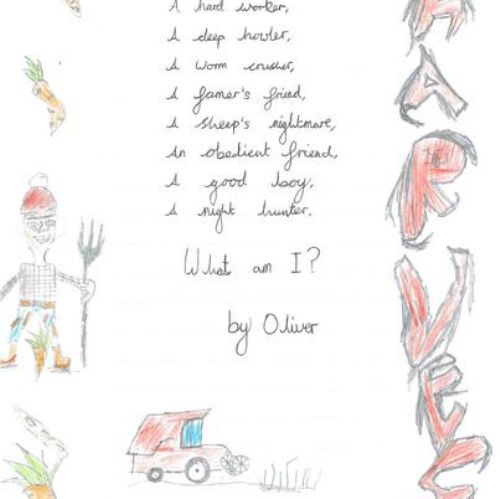 A hard worker,
A deep howler,
A worm crusher,
A famer's friend,
A sheep's nightmare,
An obedient friend,
A good boy,
A night hunter.
What am I?
by Oliver
HARVES